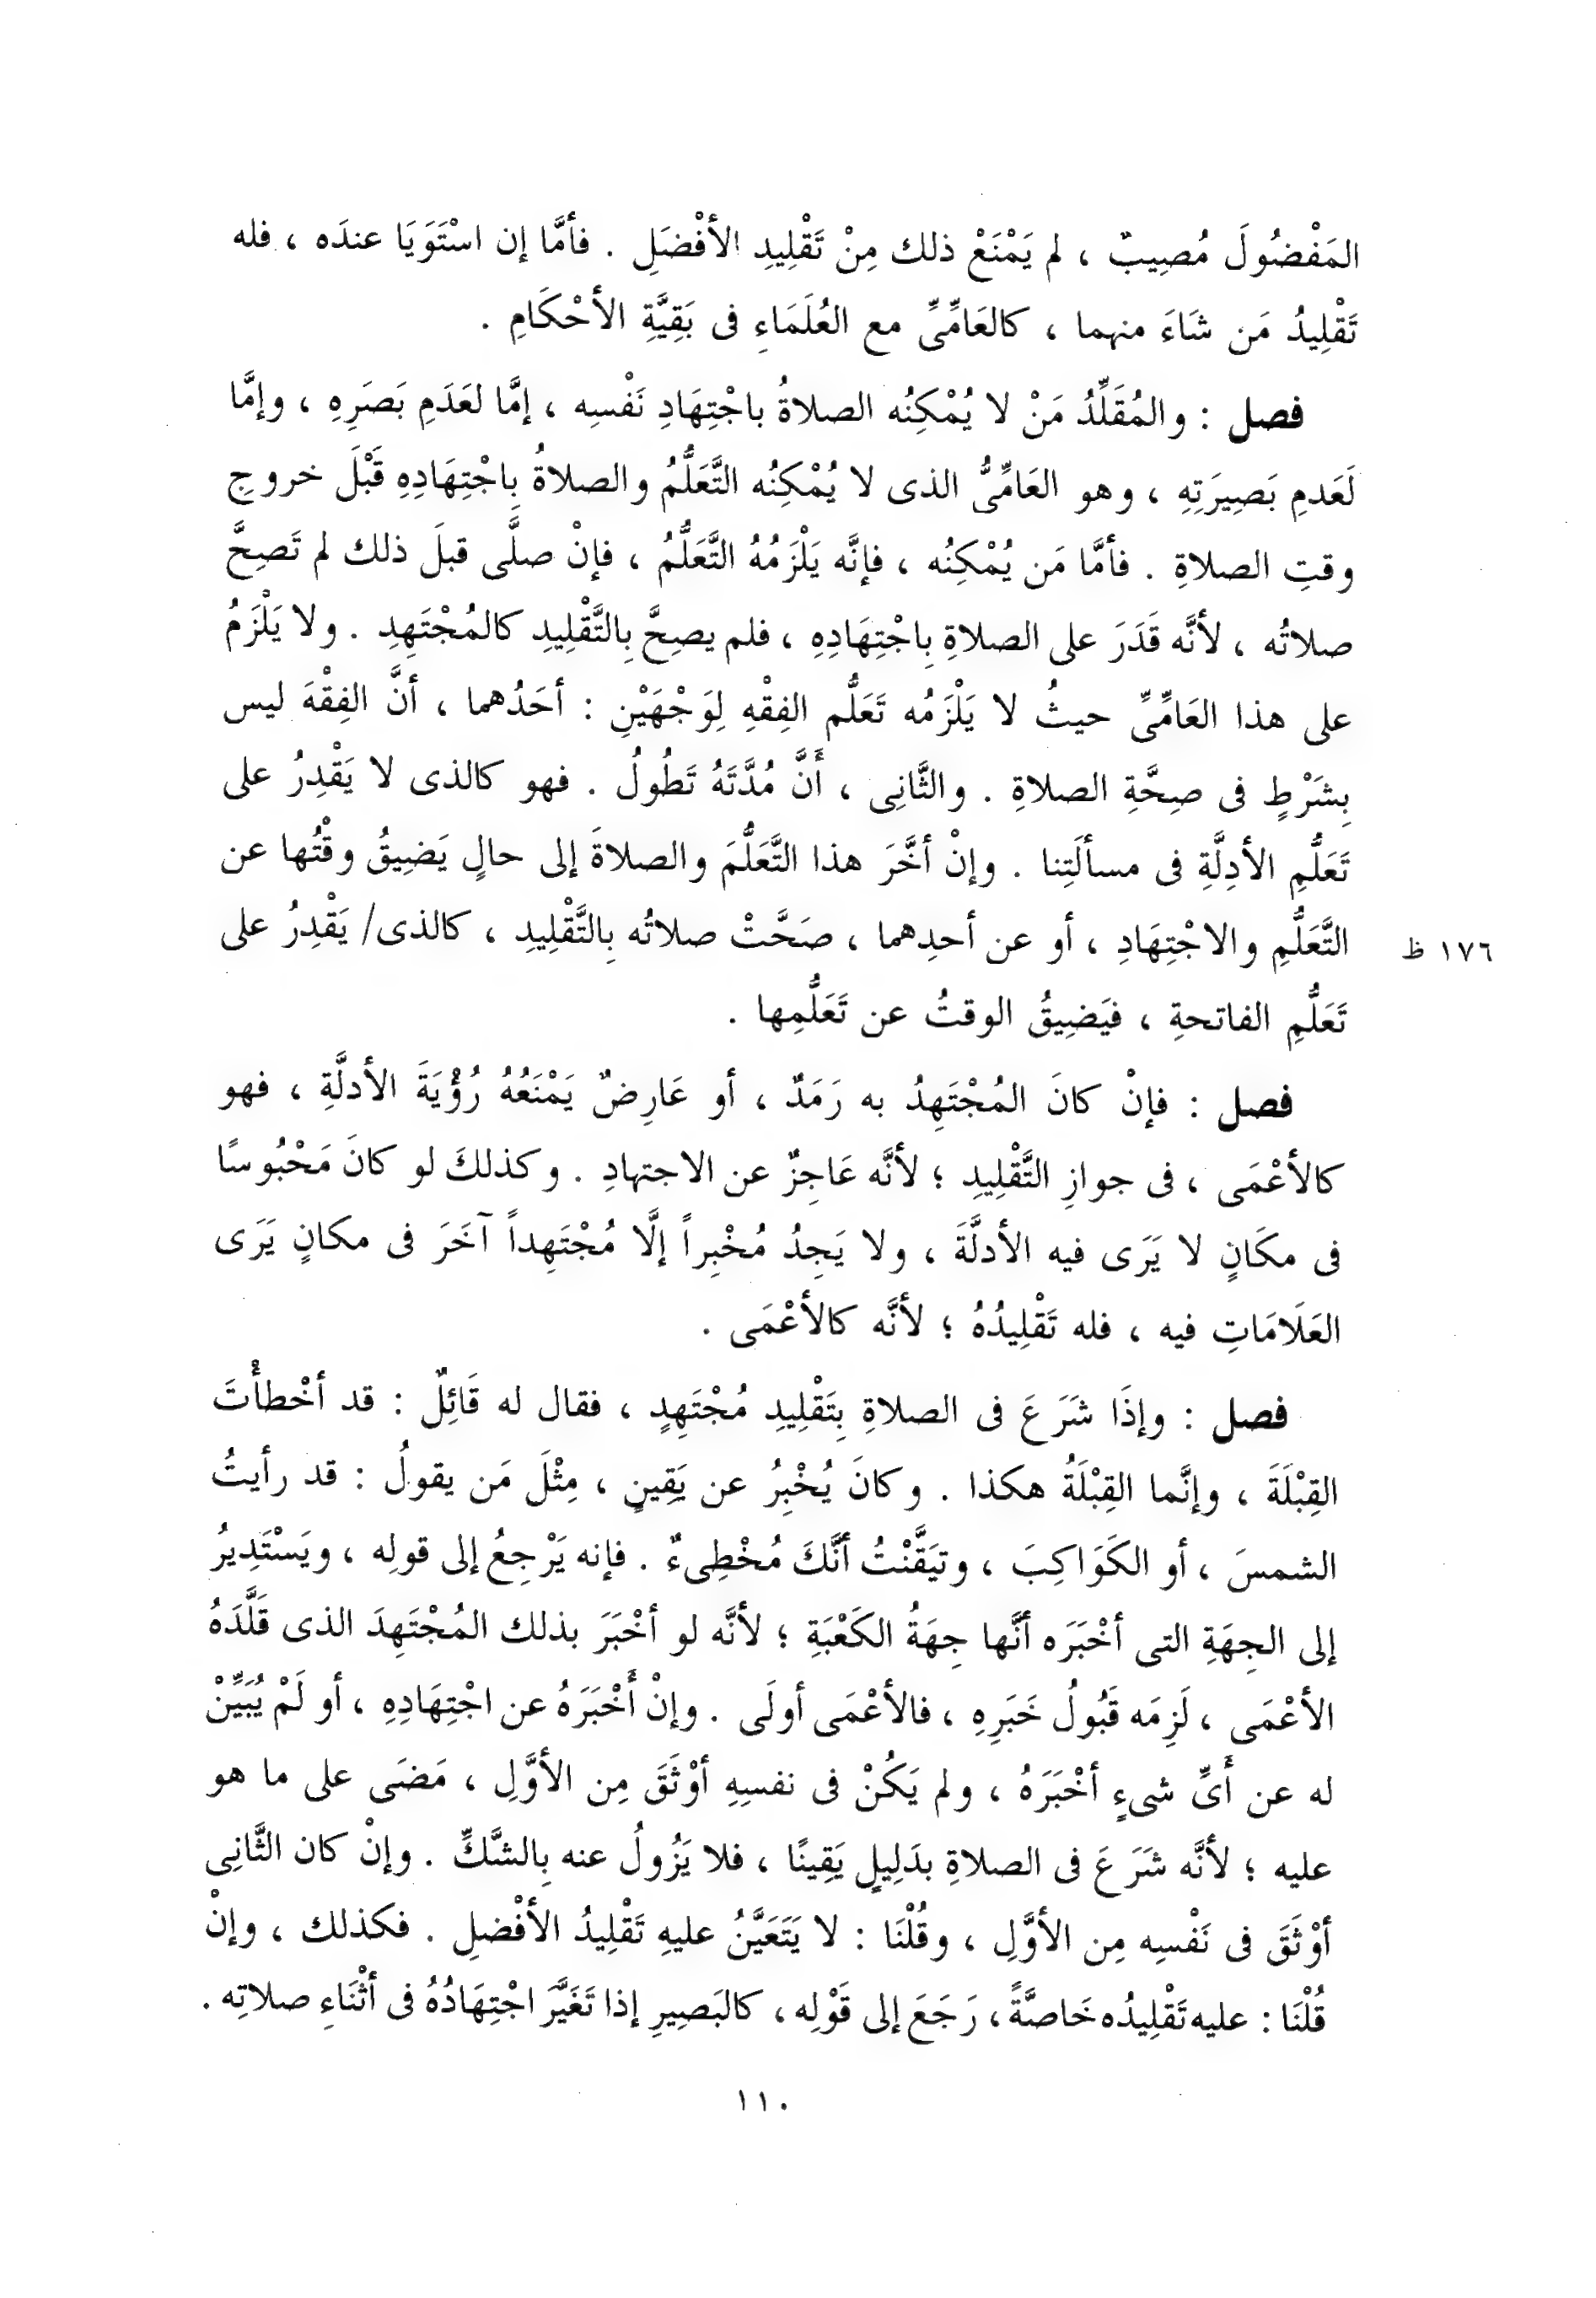 المَفْضُولَ مُصِيبٌ ، لم يَمْنَعْ ذلك مِنْ تَقْلِيدِ الأفْضَلِ . فأمَّا إن اسْتَوَيَا عندَه ، فله
تَقْلِيدُ مَن شَاءَ منهما ، كالعَامِّىِّ مع العُلَمَاءِ فى بَقِيَّةِ الأحْكَامِ .
فصل : والمُقَلِّدُ مَنْ لا يُمْكِنُه الصلاةُ باجْتِهَادِ نَفْسِه ، إمَّا لعَدَمِ بَصَرِهِ ، وإمَّا
لَعَدمِ بَصِيرَتِهِ ، وهو العَامِّىُّ الذى لا يُمْكِنُه التَّعَلُّمُ والصلاةُ بِاجْتِهَادِهِ قَبْلَ خروجِ
وقتِ الصلاةِ . فأمَّا مَن يُمْكِنُه ، فإنَّه يَلْزَمُهُ التَّعَلُّمُ ، فإنْ صلَّى قبلَ ذلك لم تَصِحَّ
صلاتُه ، لأنَّه قَدَرَ على الصلاةِ بِاجْتِهَادِهِ ، فلم يصِحَّ بِالتَّقْلِيدِ كالمُجْتَهِدِ . ولا يَلْزَمُ
على هذا العَامِّىِّ حيثُ لا يَلْزَمُه تَعَلُّم الفِقْهِ لِوَجْهَيْنِ : أحَدُهما ، أنَّ الفِقْهَ ليس
بِشَرْطٍ فى صِحَّةِ الصلاةِ . والثَّانِى ، أَنَّ مُدَّتَهُ تَطُولُ . فهو كالذى لا يَقْدِرُ على
تَعَلُّمِ الأدِلَّةِ فى مسألَتِنا . وإنْ أخَّرَ هذا التَّعَلُّمَ والصلاةَ إلى حالٍ يَضِيقُ وقْتُها عن
التَّعَلُّمِ والاجْتِهَادِ ، أو عن أحدِهما ، صَحَّتْ صلاتُه بِالتَّقْلِيدِ ، كالذى/ يَقْدِرُ على
١٧٦ ظ
تَعَلُّمِ الفاتحةِ ، فيَضِيقُ الوقتُ عن تَعَلُّمِها .
فصل : فإنْ كانَ المُجْتَهِدُ به رَمَدٌ ، أو عَارِضٌ يَمْنَعُهُ رُؤْيَةَ الأدلَّةِ ، فهو
كالأعْمَى ، فى جوازِ التَّقْلِيدِ ؛ لأنَّه عَاجِزٌ عن الاجتهادِ . وكذلكَ لو كانَ مَحْبُوسًا
فى مكَانٍ لا يَرَى فيه الأدلَّةَ ، ولا يَجِدُ مُخْبِراً إلَّا مُجْتَهِداً آخَرَ فى مكانٍ يَرَى
العَلَامَاتِ فيه ، فله تَقْلِيدُهُ ؛ لأنَّه كالأعْمَى .
فصل : وإذَا شَرَعَ فى الصلاةِ بِتَقْلِيدِ مُجْتَهِدٍ ، فقال له قَائِلٌ : قد أخْطأْتَ
القِبْلَةَ ، وإنَّما القِبْلَةُ هكذا . وكانَ يُخْبِرُ عن يَقِينٍ ، مِثْلَ مَن يقولُ : قد رأيتُ
الشمسَ ، أو الكَوَاكِبَ ، وتيَقَّنْتُ أنَّكَ مُخْطِىءٌ . فإنه يَرْجِعُ إلى قولِه ، ويَسْتَدِيرُ
إلى الجِهَةِ التى أخْبَرَه أنَّها جِهَةُ الكَعْبَةِ ؛ لأنَّه لو أخْبَرَ بذلك المُجْتَهِدَ الذى قَلَّدَهُ
الأعْمَى ، لَزِمَه قَبُولُ خَبَرِهِ ، فالأعْمَى أولَى . وإنْ أَخْبَرَهُ عن اجْتِهَادِهِ ، أو لَمْ يُبَيِّنْ
له عن أَىِّ شىءٍ أخْبَرَهُ ، ولم يَكُنْ فى نفسِهِ أوْثَقَ مِن الأوَّلِ ، مَضَى على ما هو
عليه ؛ لأنَّه شَرَعَ فى الصلاةِ بدَلِيلٍ يَقِينًا ، فلا يَزُولُ عنه بِالشَّكِّ . وإنْ كان الثَّانِى
أوْثَقَ فى نَفْسِه مِن الأوَّلِ ، وقُلْنَا : لا يَتَعَيَّنُ عليهِ تَقْلِيدُ الأفْضلِ . فكذلك ، وإنْ
قُلْنَا : عليه تَقْلِيدُه خَاصَّةً ، رَجَعَ إلى قَوْلِه ، كالبَصِيرِ إذا تَغَيَّرَ اجْتِهَادُهُ فى أثْنَاءِ صلاتِه .
١١٠